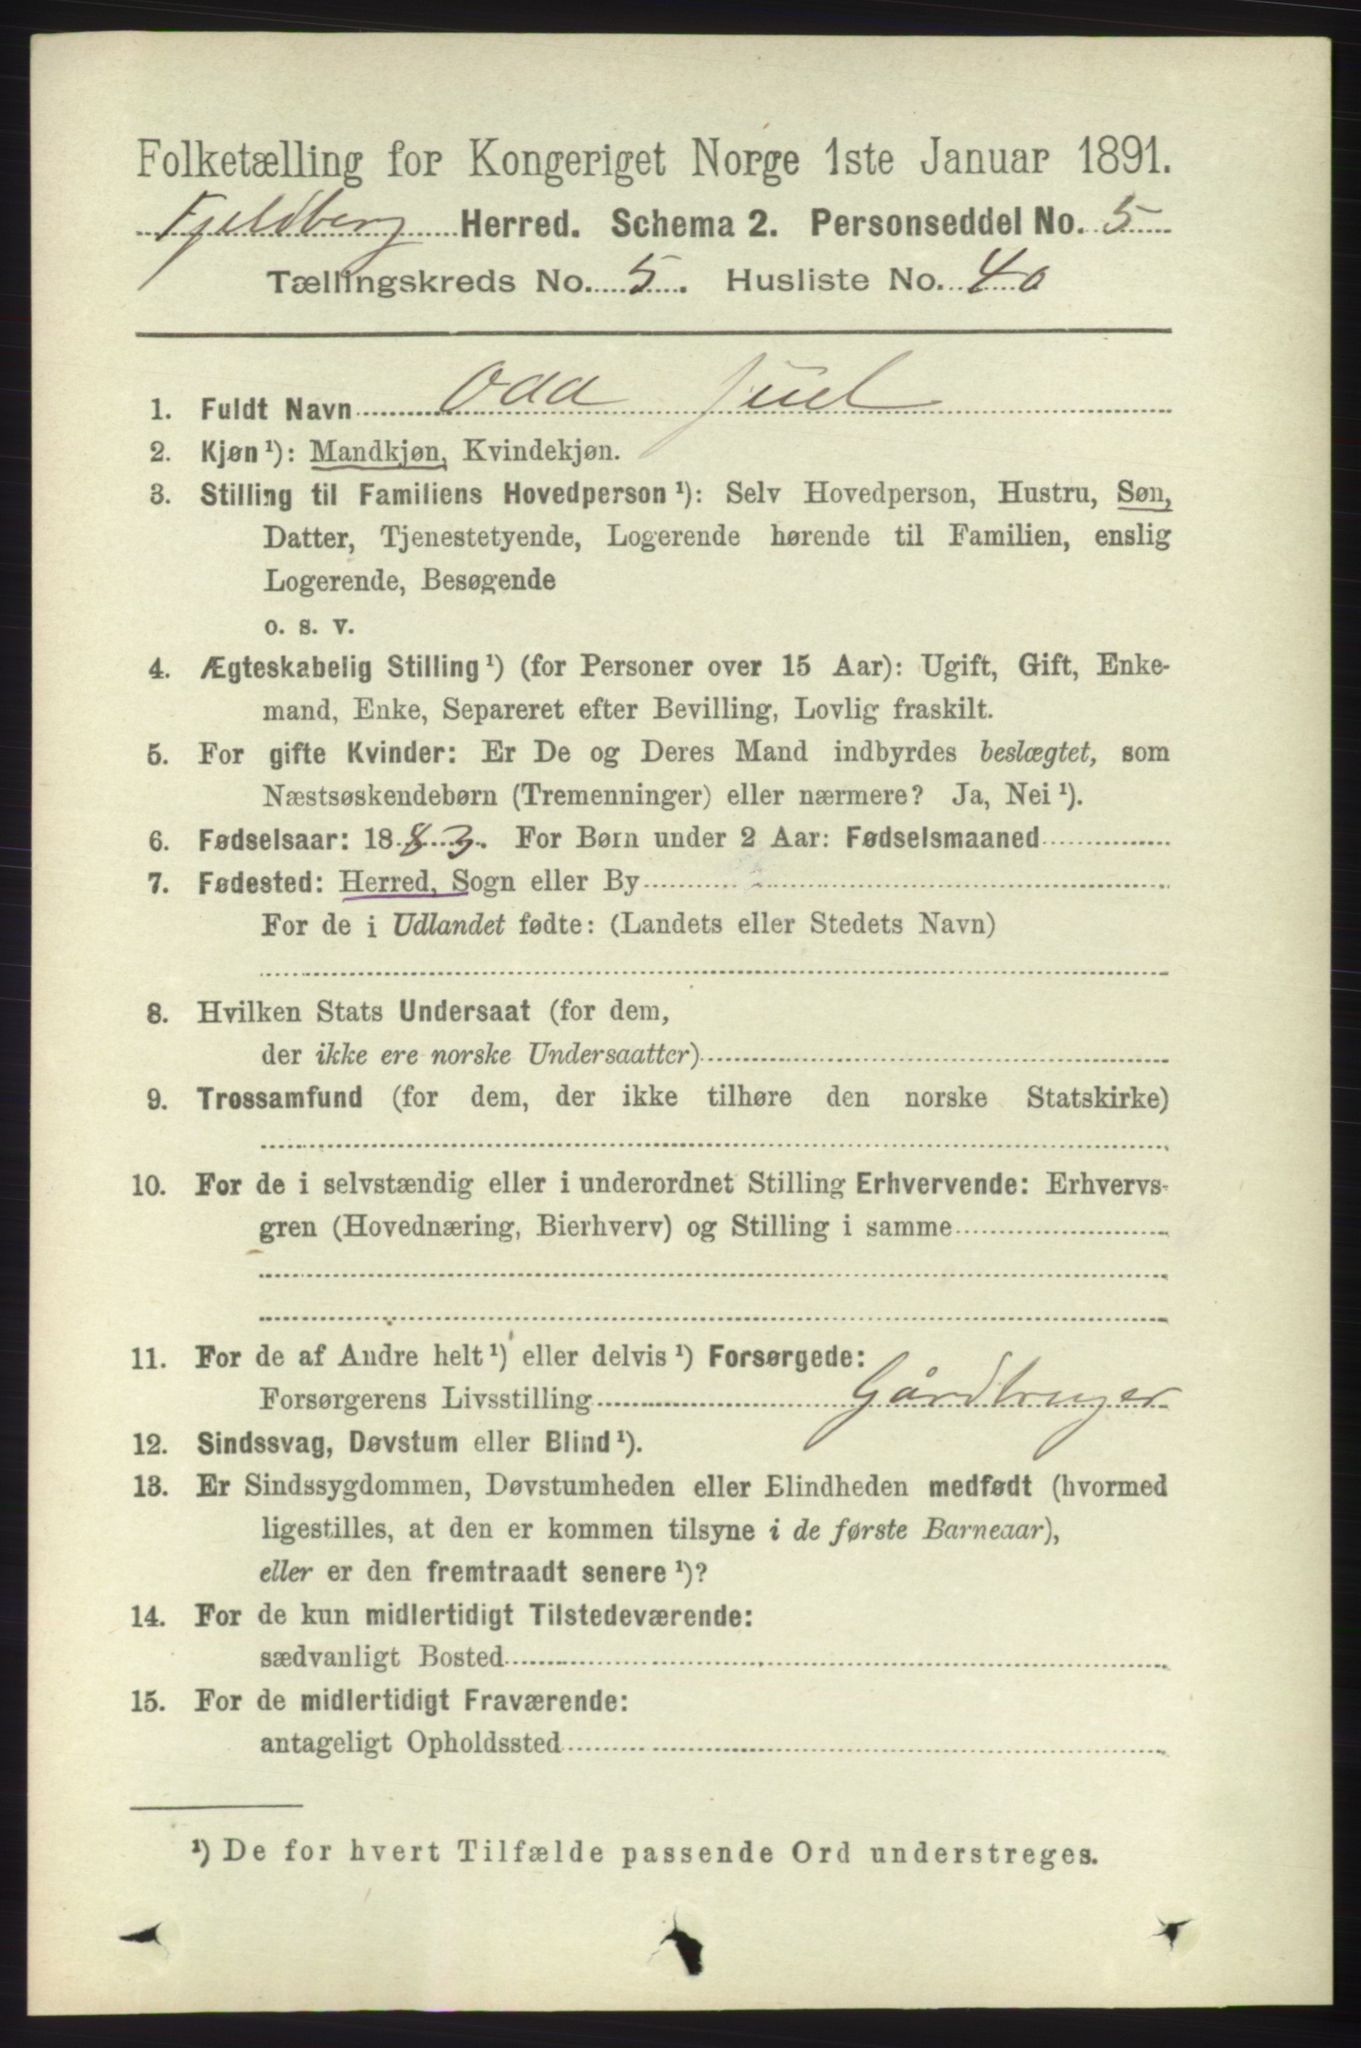 Folketælling for Kongeriget Norge 1ste Januar 1891.
Fjeldberg Herred. Schema 2. Personseddel No. 5
Tællingskreds No. 5. Husliste No. 40
1. Fuldt Navn Odd Juel
2. Kjøn ¹): Mandkjøn, Kvindekjøn.
3. Stilling til Familiens Hovedperson ¹): Selv Hovedperson, Hustru, Søn,
Datter, Tjenestetyende, Logerende hørende til Familien, enslig
Logerende, Besøgende
o. s. v.
4. Ægteskabelig Stilling ¹) (for Personer over 15 Aar): Ugift, Gift, Enke-
mand, Enke, Separeret efter Bevilling, Lovlig fraskilt.
5. For gifte Kvinder: Er De og Deres Mand indbyrdes beslægtet, som
Næstsøskendebørn (Tremenninger) eller nærmere? Ja, Nei ¹).
6. Fødselsaar: 1883. For Børn under 2 Aar: Fødselsmaaned
7. Fødested: Herred, Sogn eller By
For de i Udlandet fødte: (Landets eller Stedets Navn)
8. Hvilken Stats Undersaat (for dem,
der ikke ere norske Undersaatter)
9. Trossamfund (for dem, der ikke tilhøre den norske Statskirke)
10. For de i selvstændig eller i underordnet Stilling Erhvervende: Erhvervs-
gren (Hovednæring, Bierhverv) og Stilling i samme
11. For de af Andre helt ¹) eller delvis ¹) Forsørgede:
Forsørgerens Livsstilling Gårdbruger
12. Sindssvag, Døvstum eller Blind ¹).
13. Er Sindssygdommen, Døvstumheden eller Blindheden medfødt (hvormed
ligestilles, at den er kommen tilsyne i de første Barneaar),
eller er den fremtraadt senere ¹)?
14. For de kun midlertidigt Tilstedeværende:
sædvanligt Bosted
15. For de midlertidigt Fraværende:
antageligt Opholdssted
¹) De for hvert Tilfælde passende Ord understreges.